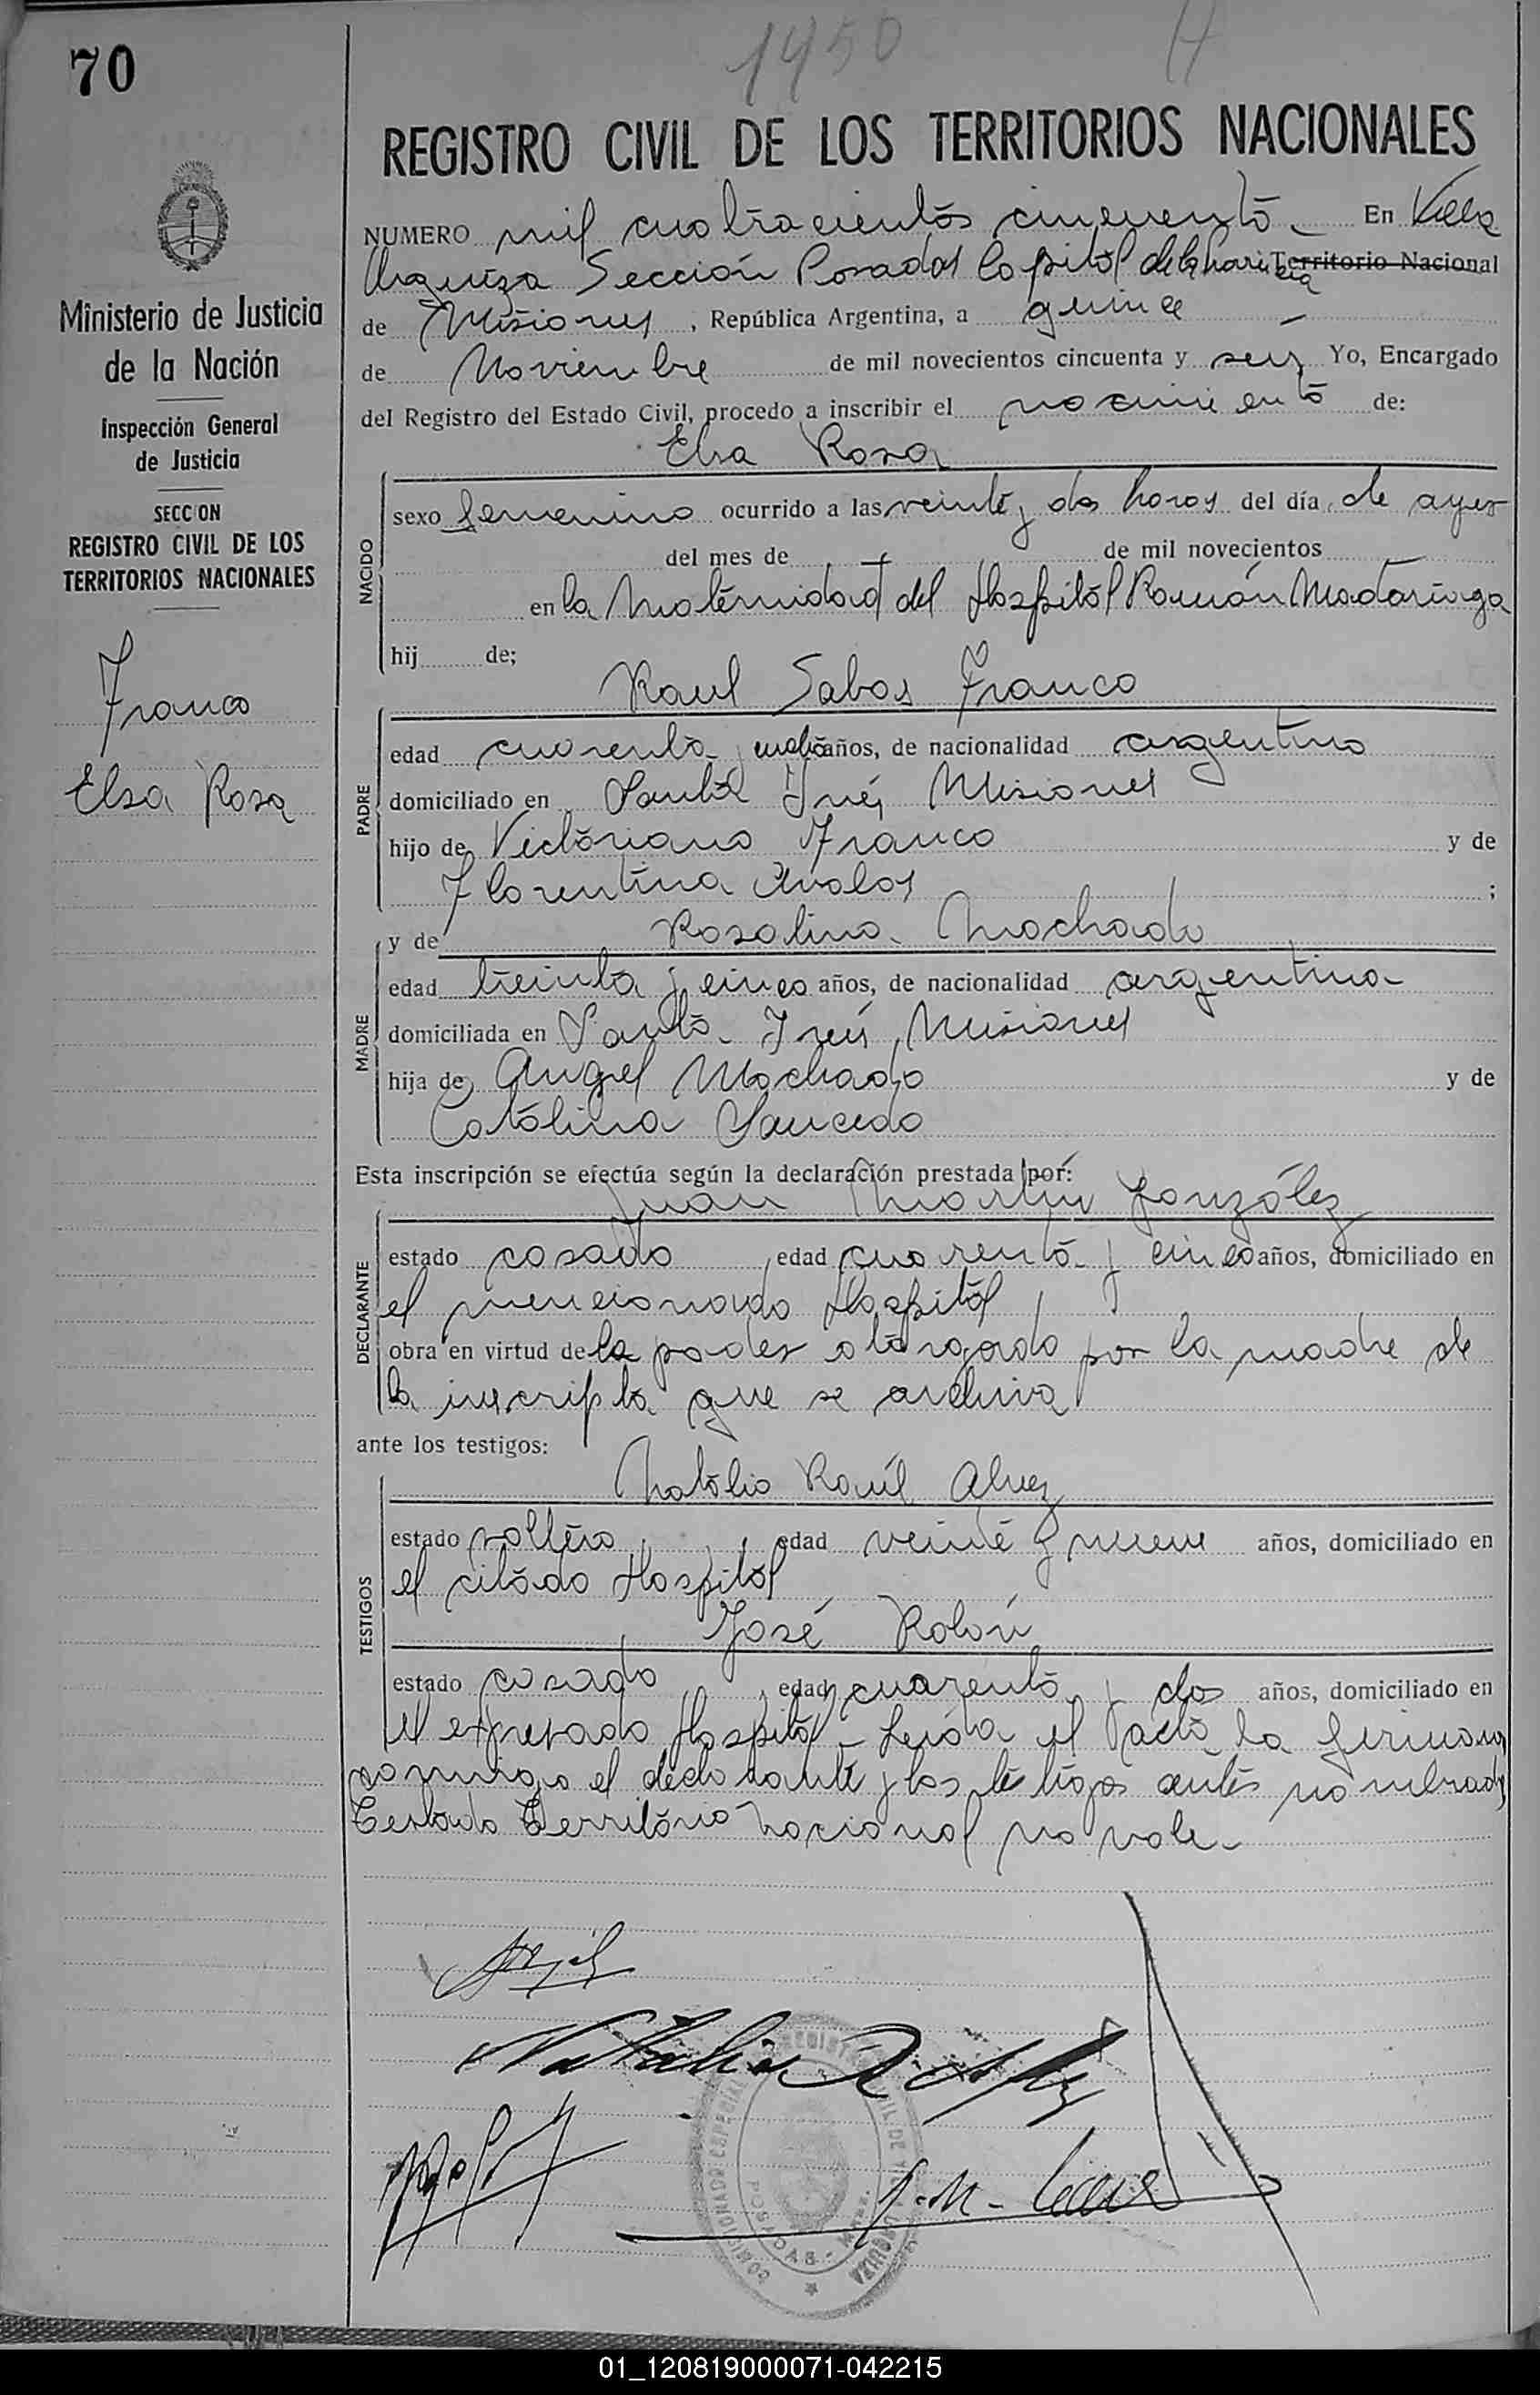 70
1450 H
REGISTRO CIVIL DE LOS TERRITORIOS NACIONALES
Ministerio de Justicia
de la Nación
Inspección General
de Justicia
SECCION
REGISTRO CIVIL DE LOS
TERRITORIOS NACIONALES
Franco
Elsa Rosa
NUMERO mil cuatrocientos cincuenta En Villa
Urquiza Sección Posadas Capital de la Provincia Territorio Nacional
de Misiones, República Argentina, a quince
de Noviembre de mil novecientos cincuenta y seis Yo, Encargado
del Registro del Estado Civil, procedo a inscribir el nacimiento de:
Elsa Rosa
NACIDO
sexo femenino ocurrido a las veinte y dos horas del día de ayer
del mes de de mil novecientos
en la Maternidad del Hospital Ramón Madariaga
hij de;
Raul Sabas Franco
PADRE
edad cuarenta y años, de nacionalidad argentino
domiciliado en Santa Inés Misiones
hijo de Victoriano Franco y de
Florentina Avalos ;
MADRE
y de Rosalina Machado
edad treinta y cinco años, de nacionalidad argentina
domiciliada en Santa Inés, Misiones
hija de Angel Machado y de
Catalina Saucedo
Esta inscripción se efectúa según la declaración prestada por:
Juan Martin González
DECLARANTE
estado casado, edad cuarenta y cinco años, domiciliado en
el mencionado Hospital
obra en virtud de la poder otorgado por la madre de
la inscripta que se archiva
ante los testigos:
Natalio Raúl Alvez
TESTIGOS
estado soltero, edad veinte y nueve años, domiciliado en
el citado Hospital
José Rolón
estado casado, edad cuarenta y dos años, domiciliado en
el expresado Hospital - Leída el acta la firman
conmigo el declarante y los testigos antes nombrados
Testado Territorio Nacional no vale
01_120819000071-042215